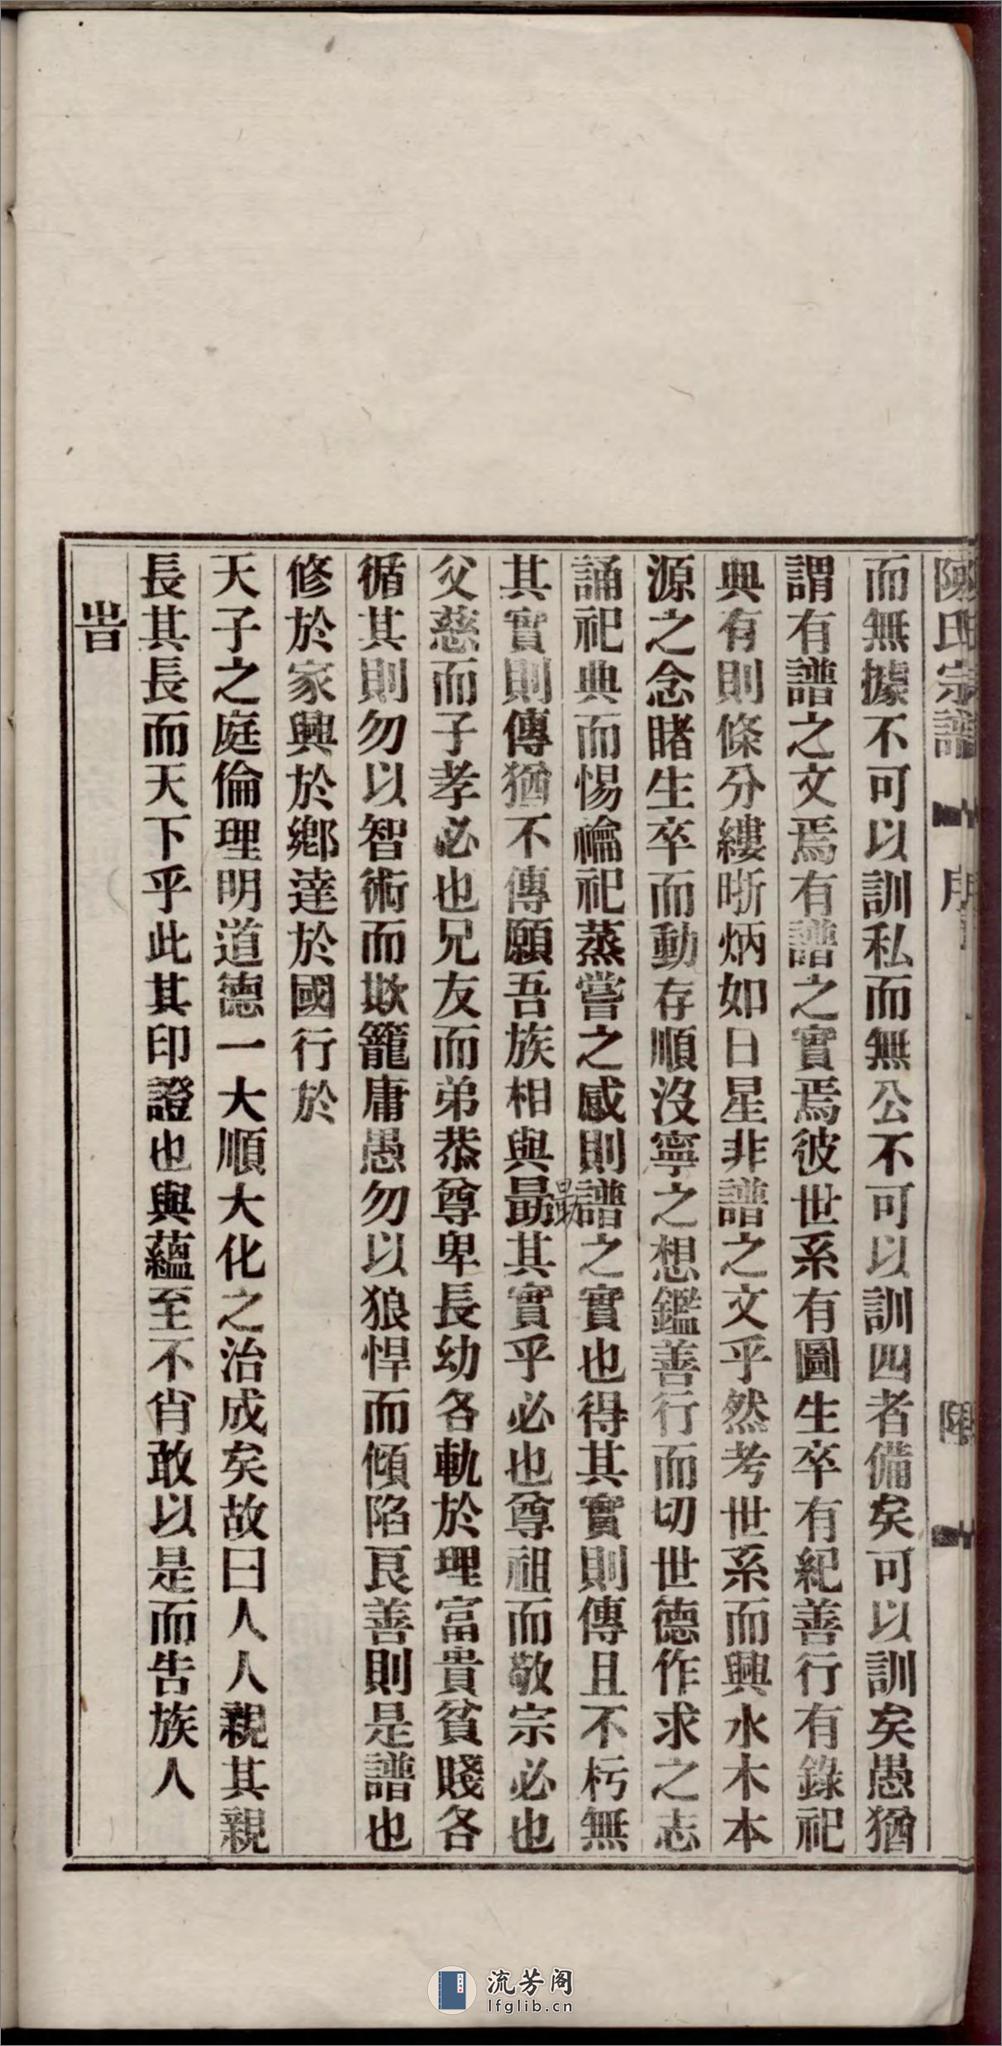 陳氏宗譜
序
而無據不可以訓私而無公不可以訓四者備矣可以訓矣愚猶
謂有譜之文焉有譜之實焉彼世系有圖生卒有紀善行有錄祀
典有則條分縷晰炳如日星非譜之文乎然考世系而興水木本
源之念睹生卒而動存順沒寧之想鑑善行而切世德作求之志
誦祀典而惕禴祀蒸嘗之感則譜之實也得其實則傳且不朽無
其實則傳猶不傳願吾族相與勗其實乎必也尊祖而敬宗必也
勗
父慈而子孝必也兄友而弟恭尊卑長幼各軌於理富貴貧賤各
循其則勿以智術而欺籠庸愚勿以狼悍而傾陷良善則是譜也
修於家興於鄉達於國行於
天子之庭倫理明道德一大順大化之治成矣故曰人人親其親
長其長而天下平此其印證也與蘊至不肖敢以是而告族人
旹
流芳阁
lfglib.cn